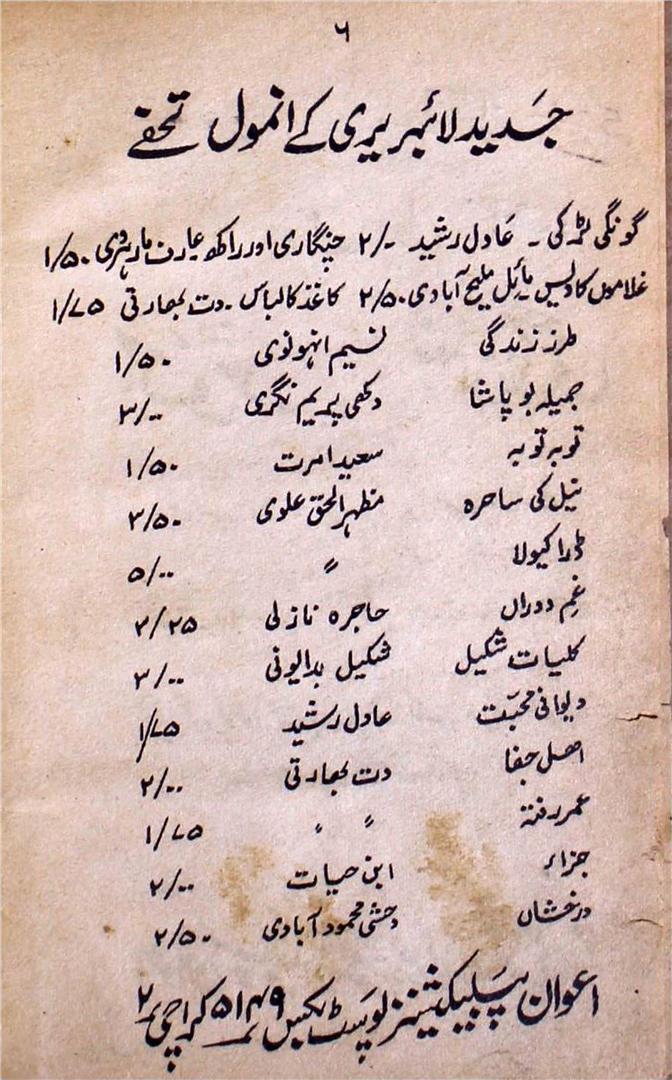 ۶
جدید لائبریری کے انمول تحفے
گونگی لڑکی - عادل رشید ۲/۰ چنگاری اور راکھ عارف مارہروی ۱/۵۰
غلاموں کا دیس مائل ملیح آبادی ۲/۵۰ کاغذ کا لباس - دت بھارتی ۱/۷۵
طرز زندگی نسیم انہونوی ۱/۵۰
جمیلہ بوپاشا دکھی پریم نگری ۳/۰۰
توبہ توبہ سعید امرت ۱/۵۰
نیل کی ساحرہ مظہر الحق علوی ۳/۵۰
ڈراکیولا " ۵/۰۰
غم دوراں حاجرہ نازلی ۲/۲۵
کلیات شکیل شکیل بدایونی ۳/۰۰
دیوانی محبت عادل رشید ۱/۷۵
اھل جفا دت بھارتی ۲/۰۰
عمر رفتہ " " ۱/۷۵
جزاء ابن حیات ۲/۰۰
درخشاں وحشی محمود آبادی ۲/۵۰
اعوان پبلیکیشنز پوسٹ بکس ۵۱۴۹ کراچی ۲